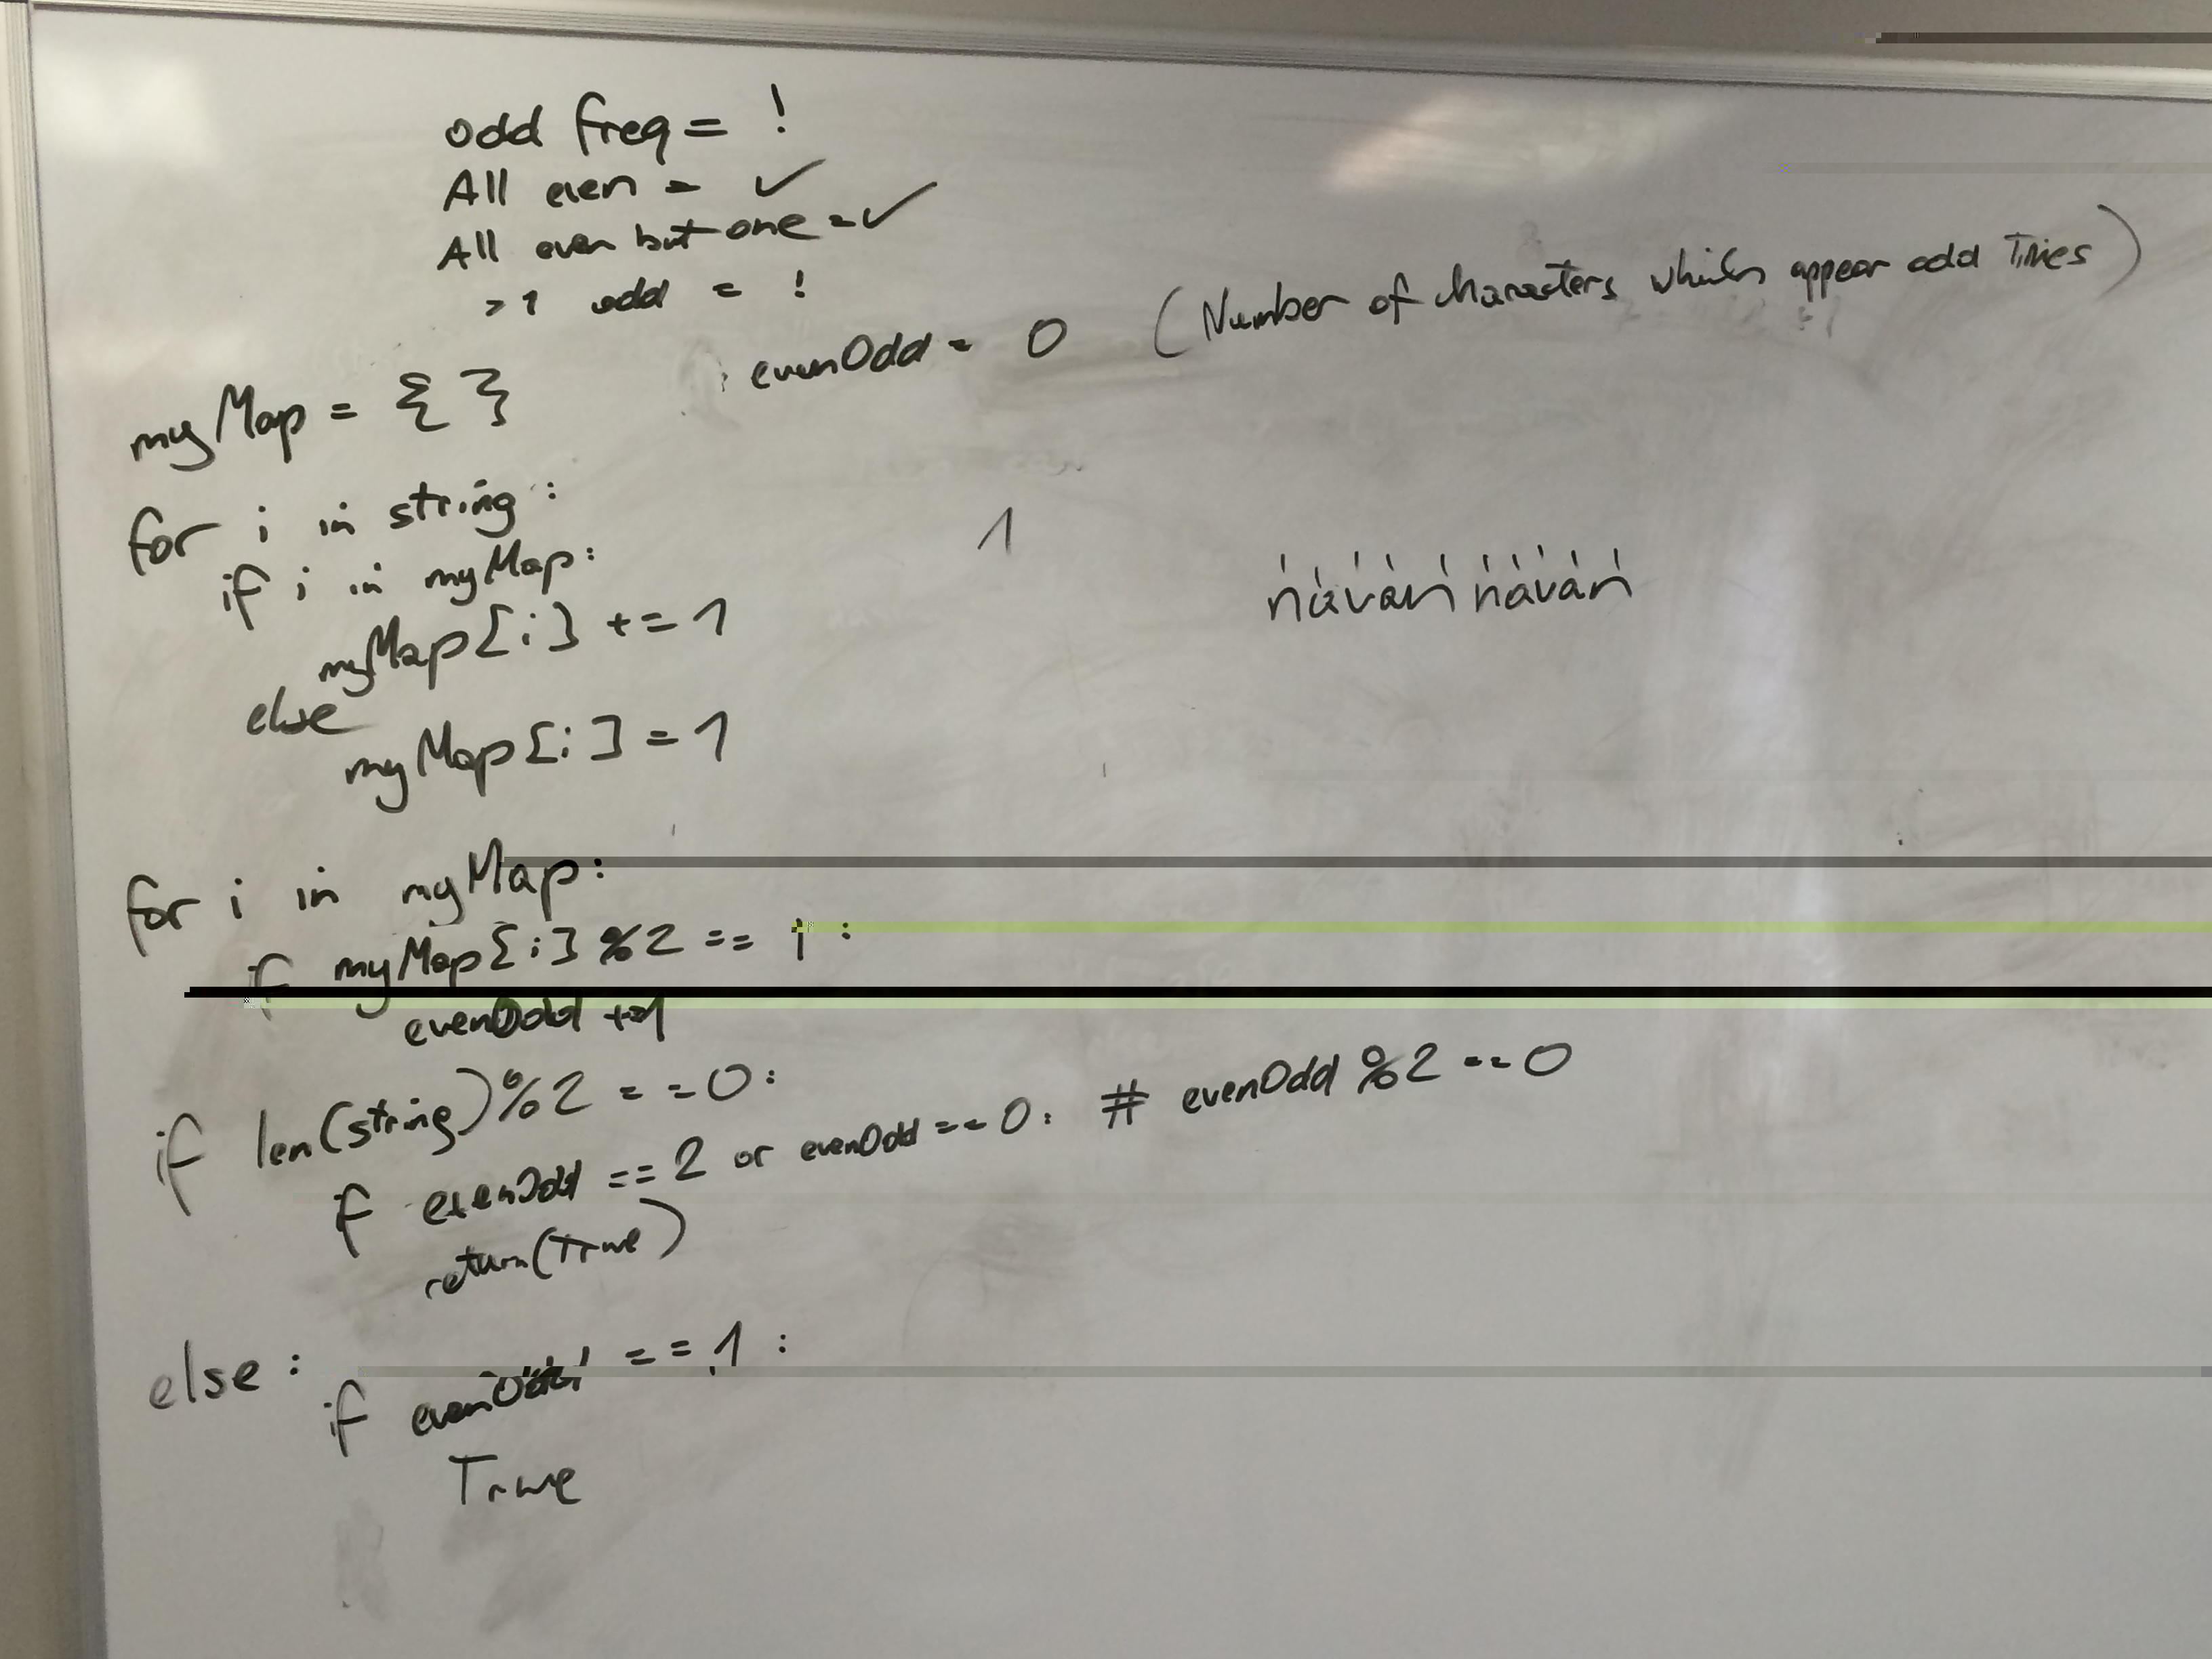 odd freq = !
All even = ✓
All even but one = ✓
>1 odd = !
evenOdd = 0 (Number of characters which appear odd Times)
myMap = { }
for i in string :
if i in myMap:
myMap[i] += 1
else
myMap[i] = 1
1
navan navan
for i in myMap:
if myMap[i] %2 == 1 :
evenOdd +=1
if len(string)%2 == 0:
if evenOdd == 2 or evenOdd == 0: # evenOdd %2 == 0
return(True)
else :
if evenOdd == 1 :
True